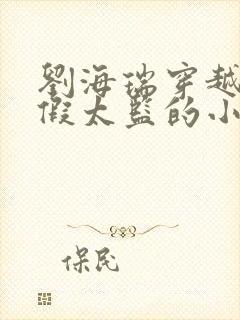 劉海瑞穿越
假太監的小
保民